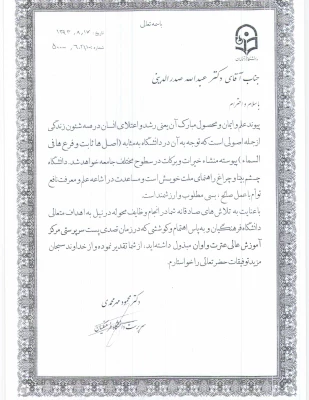 باسمه تعالی
جناب آقای دکتر عبدالله صدرالدینی
با سلام و احترام
پیوند علم و ایمان و محصول مبارک آن یعنی رشد و اعتلای انسان در همه شئون زندگی
از جمله اصولی است که توجه به آن در دانشگاه به مثابه (اصلها ثابت و فرعها فی
السماء) پیوسته منشاء خیرات و برکات در سطوح مختلف جامعه خواهد شد. دانشگاه
چشم بینا و چراغ راهنمای ملت خویش است و مساعدت در اشاعه علم و معرفت نافع
توأم با عمل صالح، بسی مطلوب و ارزشمند است.
با عنایت به تلاش‌های صادقانه شما در انجام وظایف محوله در نیل به اهداف متعالی
دانشگاه فرهنگیان و به پاس اهتمام و کوششی که در زمان تصدی پست سرپرستی مرکز
آموزش عالی عترت وانان مبذول داشته‌اید، از شما تقدیر نموده و از خداوند سبحان
مزید توفیقات حضرتعالی را خواستارم.
دکتر محمود مهرمحمدی
سرپرست دانشگاه فرهنگیان